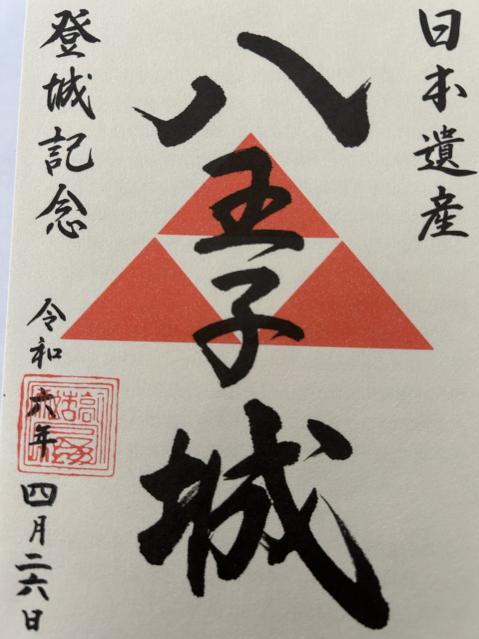 日本遺産
八王子城
登城記念
令和六年四月二六日